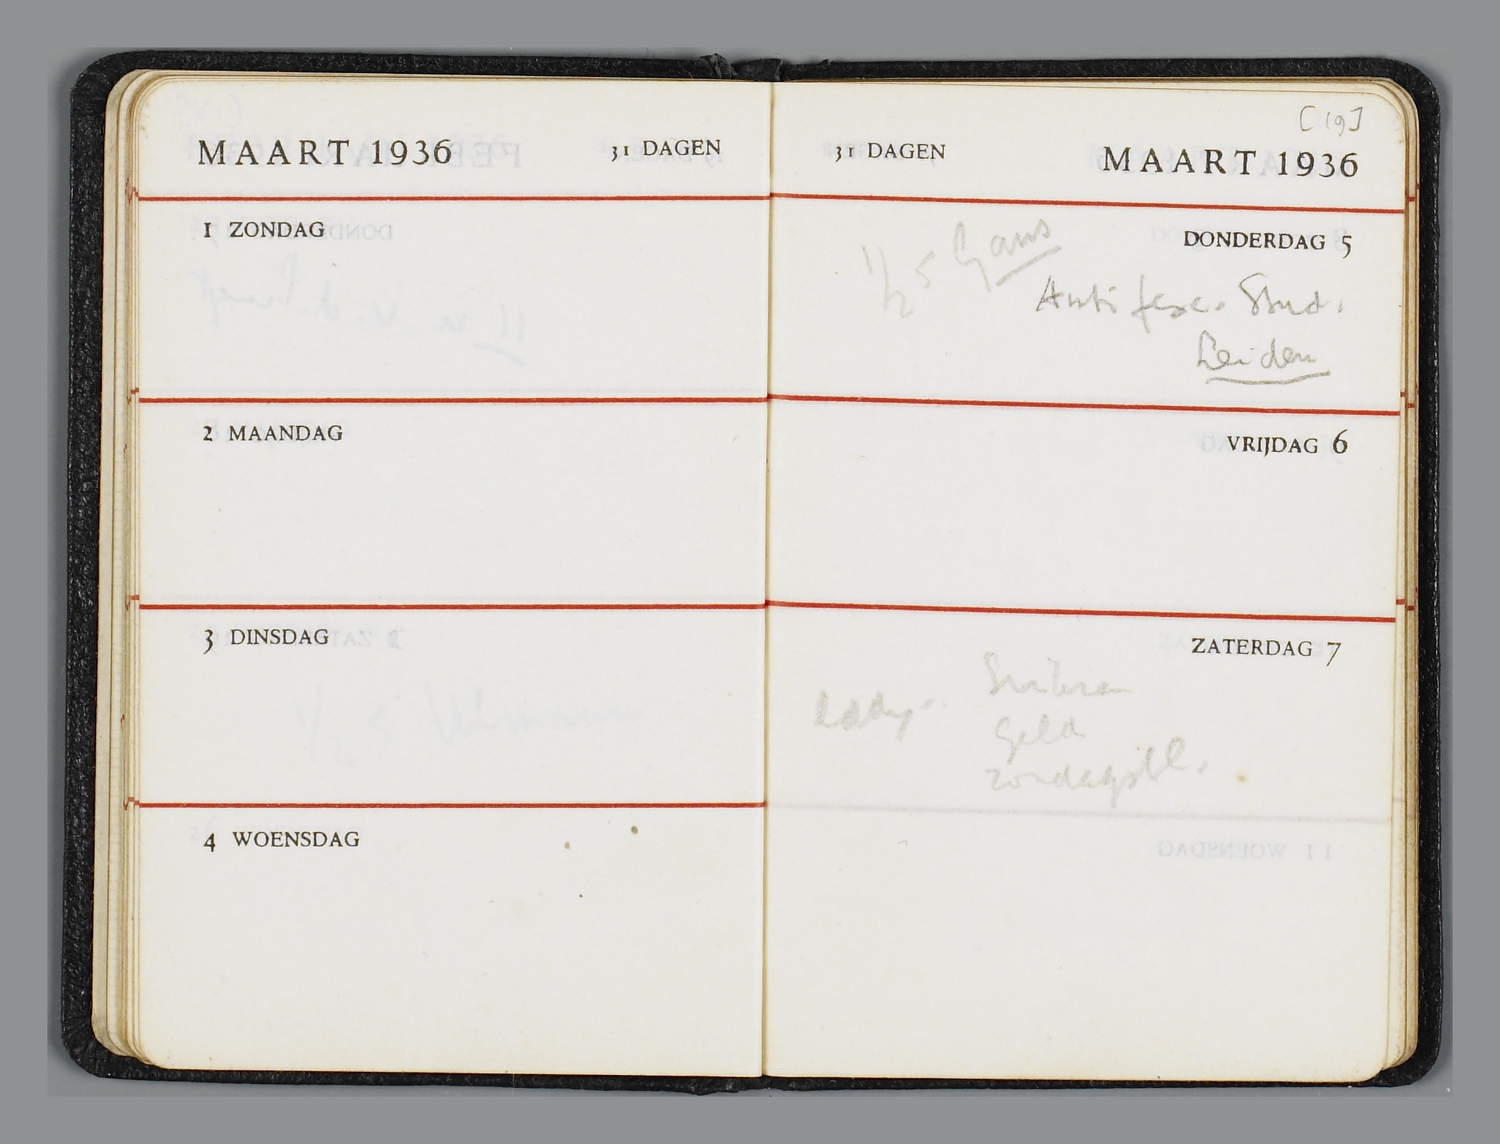 MAART 1936 31 DAGEN
1 ZONDAG
2 MAANDAG
3 DINSDAG
4 WOENSDAG
[19]
31 DAGEN MAART 1936
DONDERDAG 5
1/2 5 Gans
Anti fasc. Stud.
Leiden
VRIJDAG 6
ZATERDAG 7
Eddy.
Geld
zondagsbl.